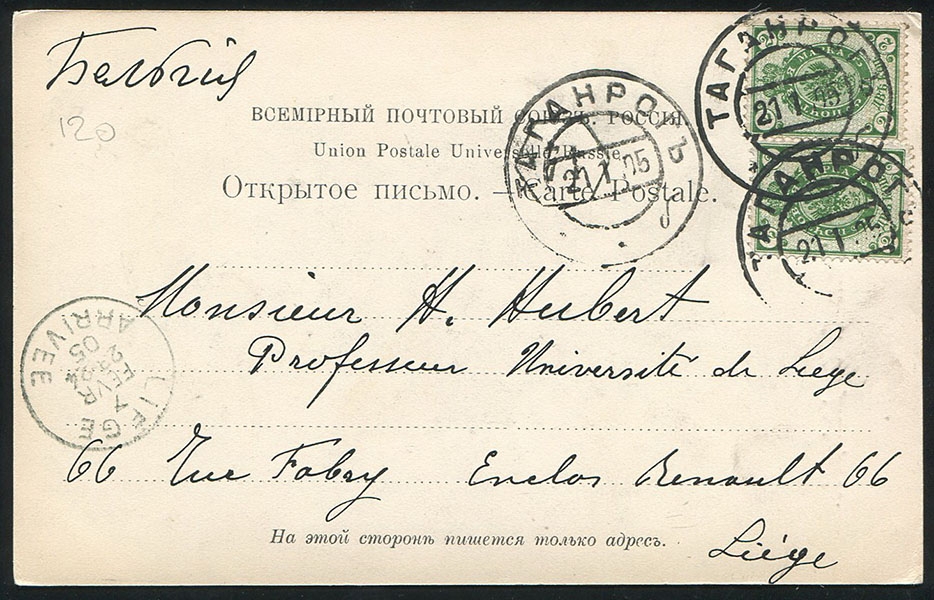 Бельгія
120
ВСЕМІРНЫЙ ПОЧТОВЫЙ СОЮЗЪ. РОССІЯ.
Union Postale Universelle. Russie.
Открытое письмо. — Carte Postale.
ТАГАНРОГЪ
21 1 05
ТАГАНРОГЪ
21 1 05
ТАГАНРОГ
21 1 05
Monsieur H. Hubert
Professeur Université de Liege
LIEGE
ARRIVEE
FEVR
05
66 Rue Fabry Enclos Renault 66
Liége
На этой сторонѣ пишется только адресъ.